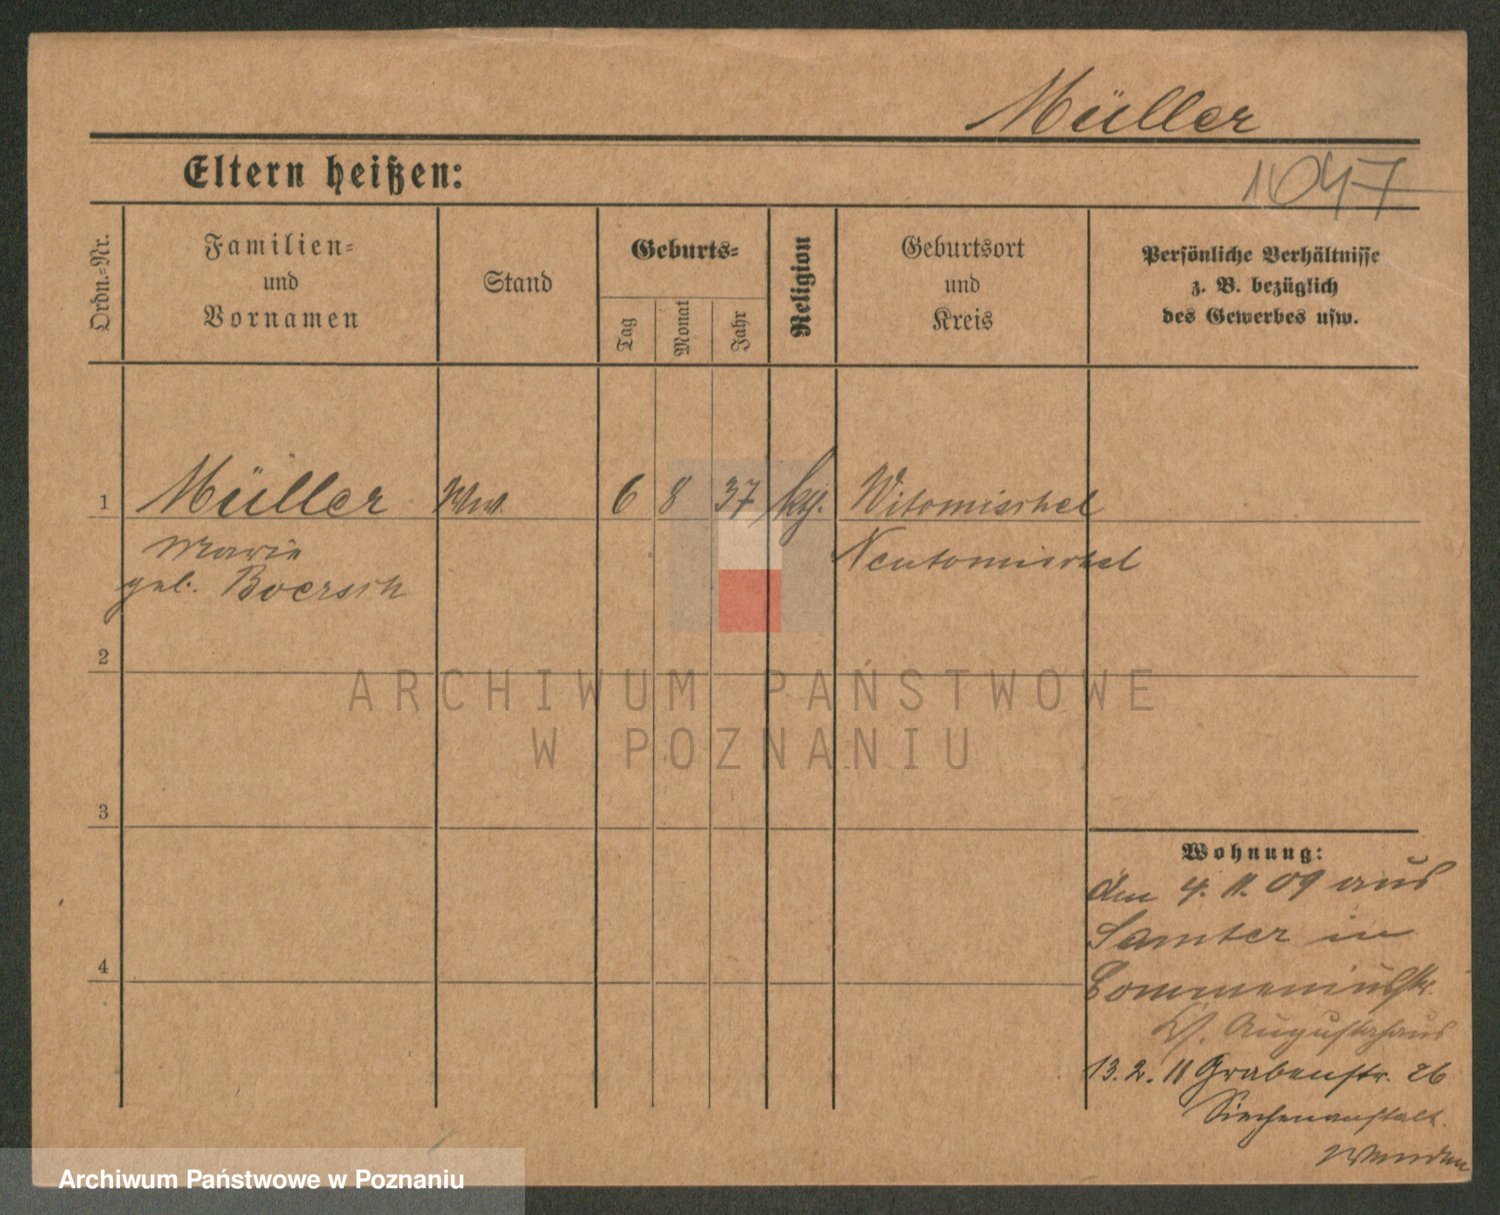 Müller
Eltern heißen:
1047
Ordn.-Nr.
Familien-
und
Vornamen
Stand
Geburts-
Tag
Monat
Jahr
Religion
Geburtsort
und
Kreis
Persönliche Verhältnisse
z. B. bezüglich
des Gewerbes usw.
1 Müller Ww. 6 8 37 Witomischel
Marie Neutomischel
geb. Boersch
2
3
4
Wohnung:
den 4. 11. 09 aus
Samter in
Commeniusstr.
Augustahaus
13. 2. 11 Grabenstr. 26
Siechenanstalt.
Wenden
ARCHIWUM PAŃSTWOWE
W POZNANIU
Archiwum Państwowe w Poznaniu